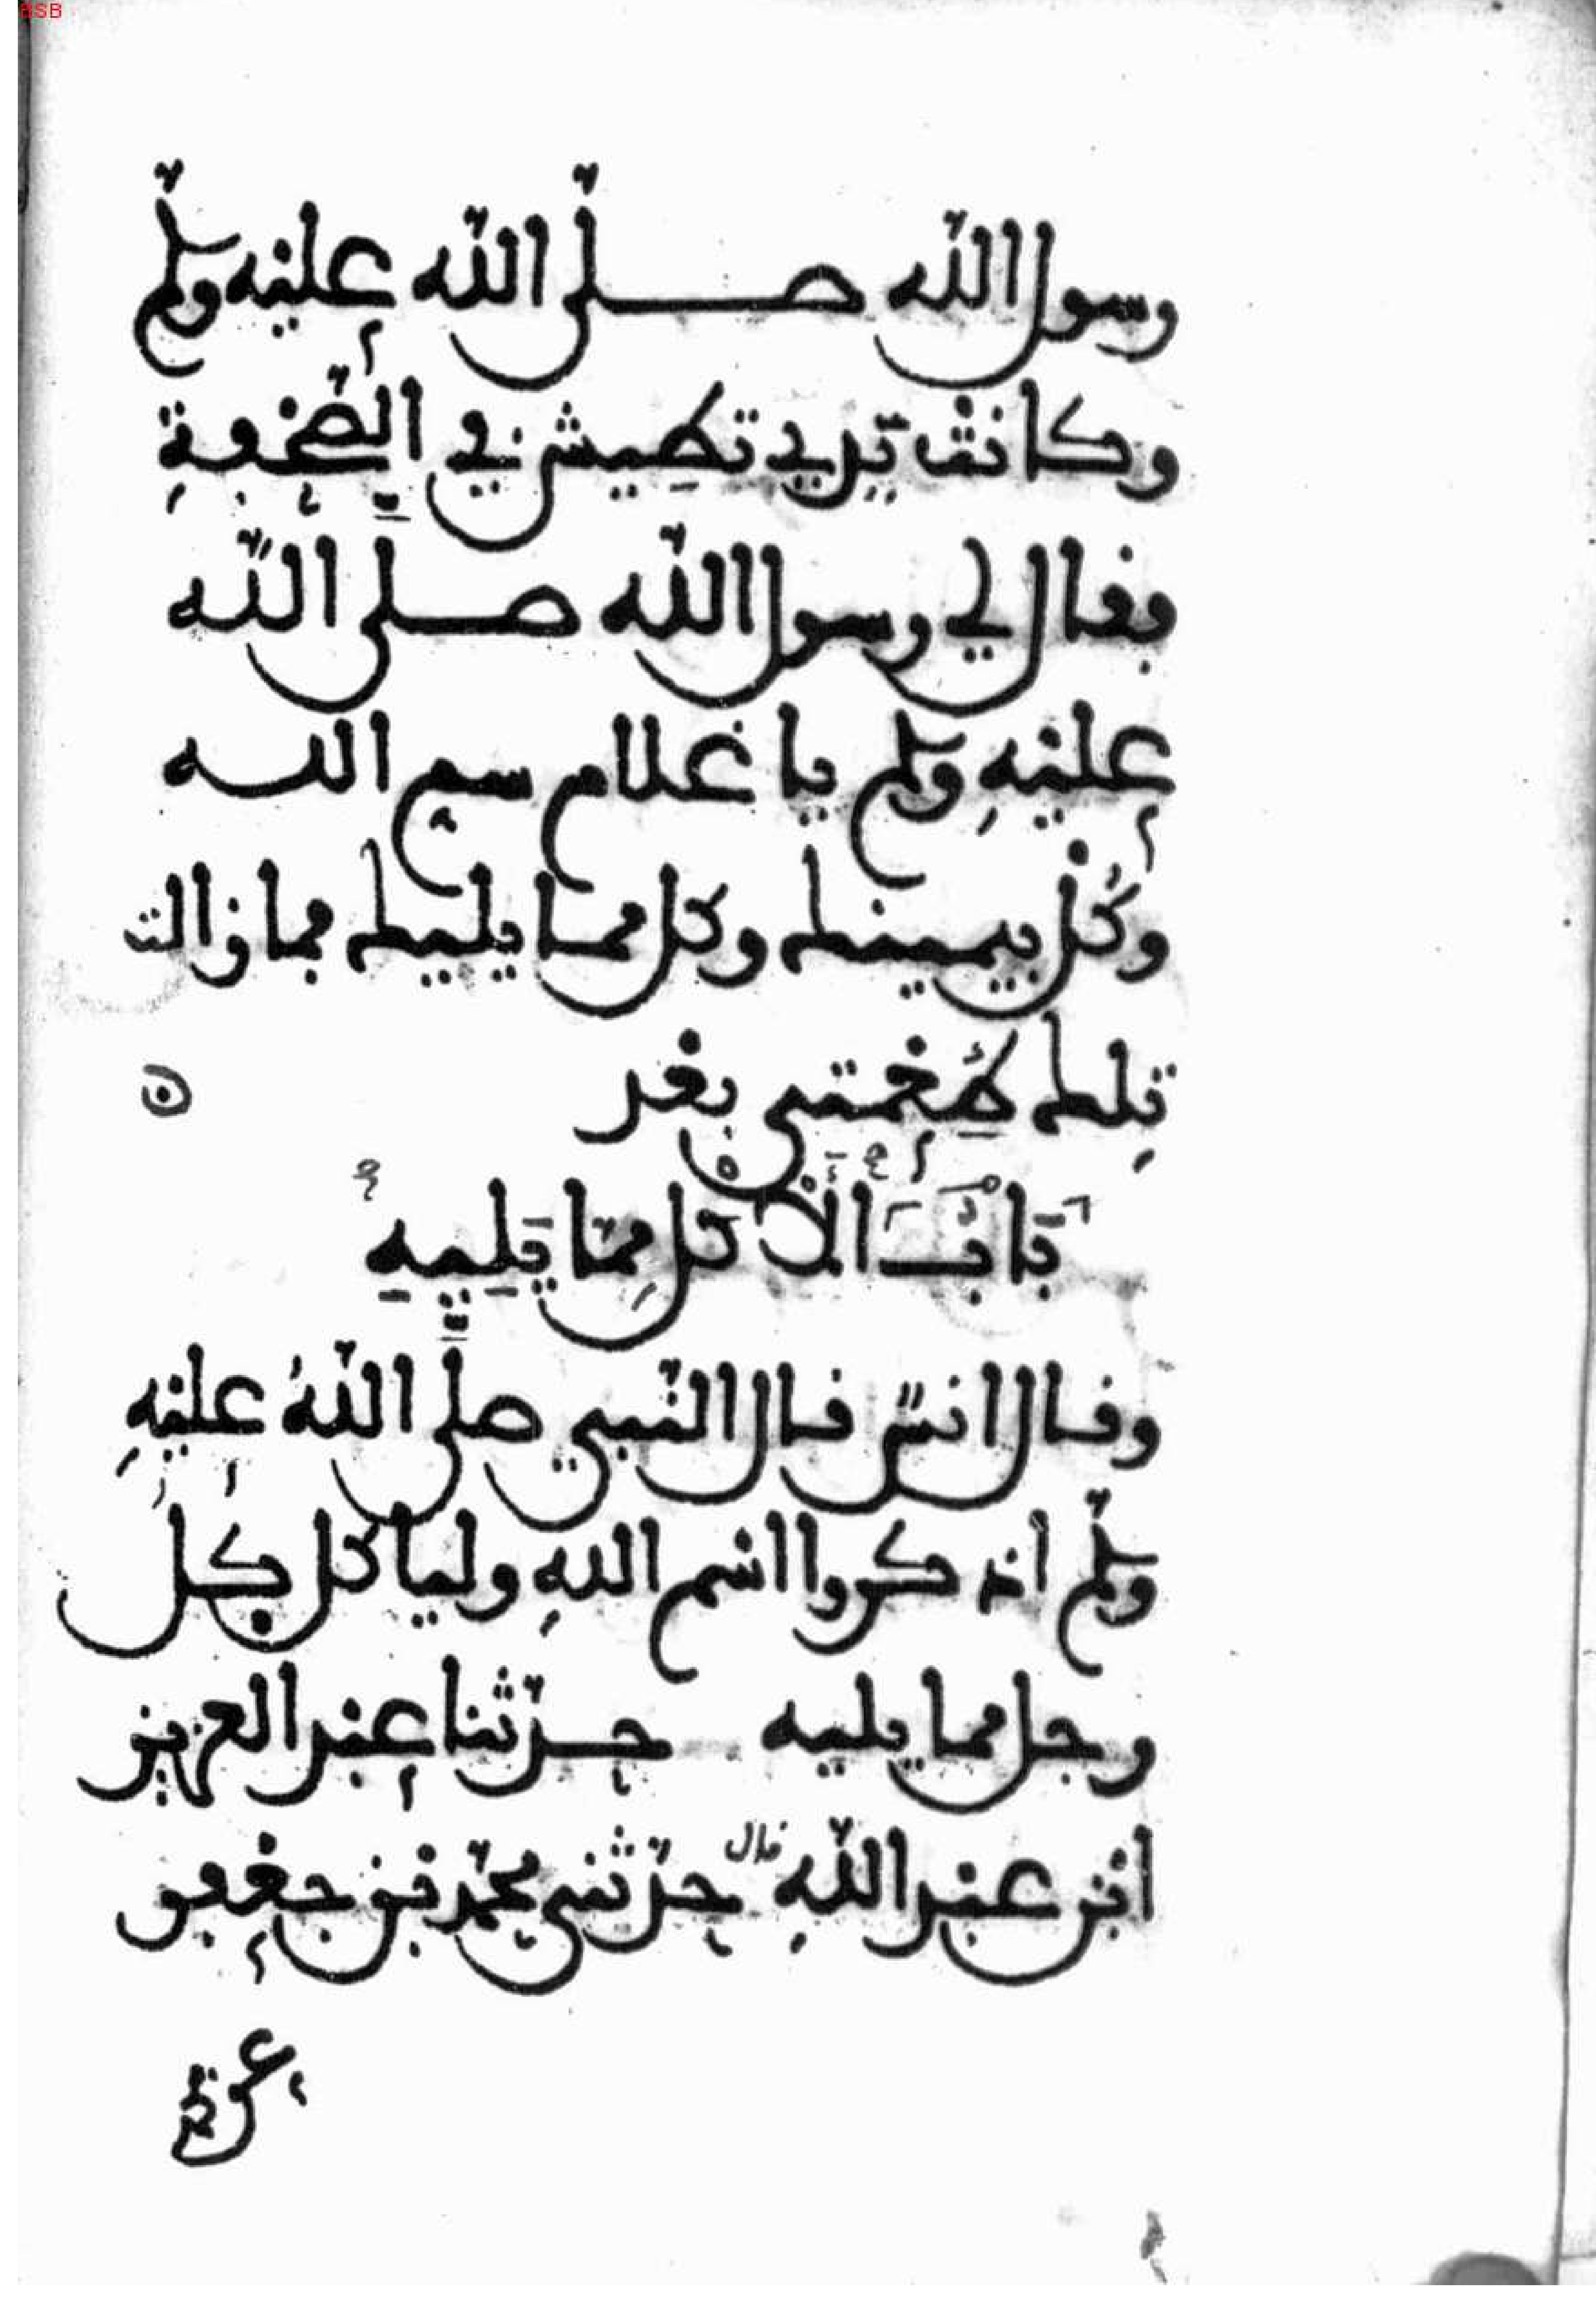 BSB
رسول الله صلّى الله عليه وسلّم
وكانت يدي تطيش في الصّحفة
فقال لي رسول الله صلّى الله
عليه وسلم يا غلام سم الله
وكُل بيمينك وكل مما يليك فما زالت
تِلك طُعْمتي بعد
بَابُ الأكل مِمّا يَلِيهِ
وقال انسٌ قال النّبي صلّى اللهُ عليهِ
وسلّم اذكروا اسْم اللهِ ولياكل كل
رجل مما يليه حدّثنا عبد العزيز
ابن عبد اللهِ قال حدّثني محمّد بن جعفر
عن